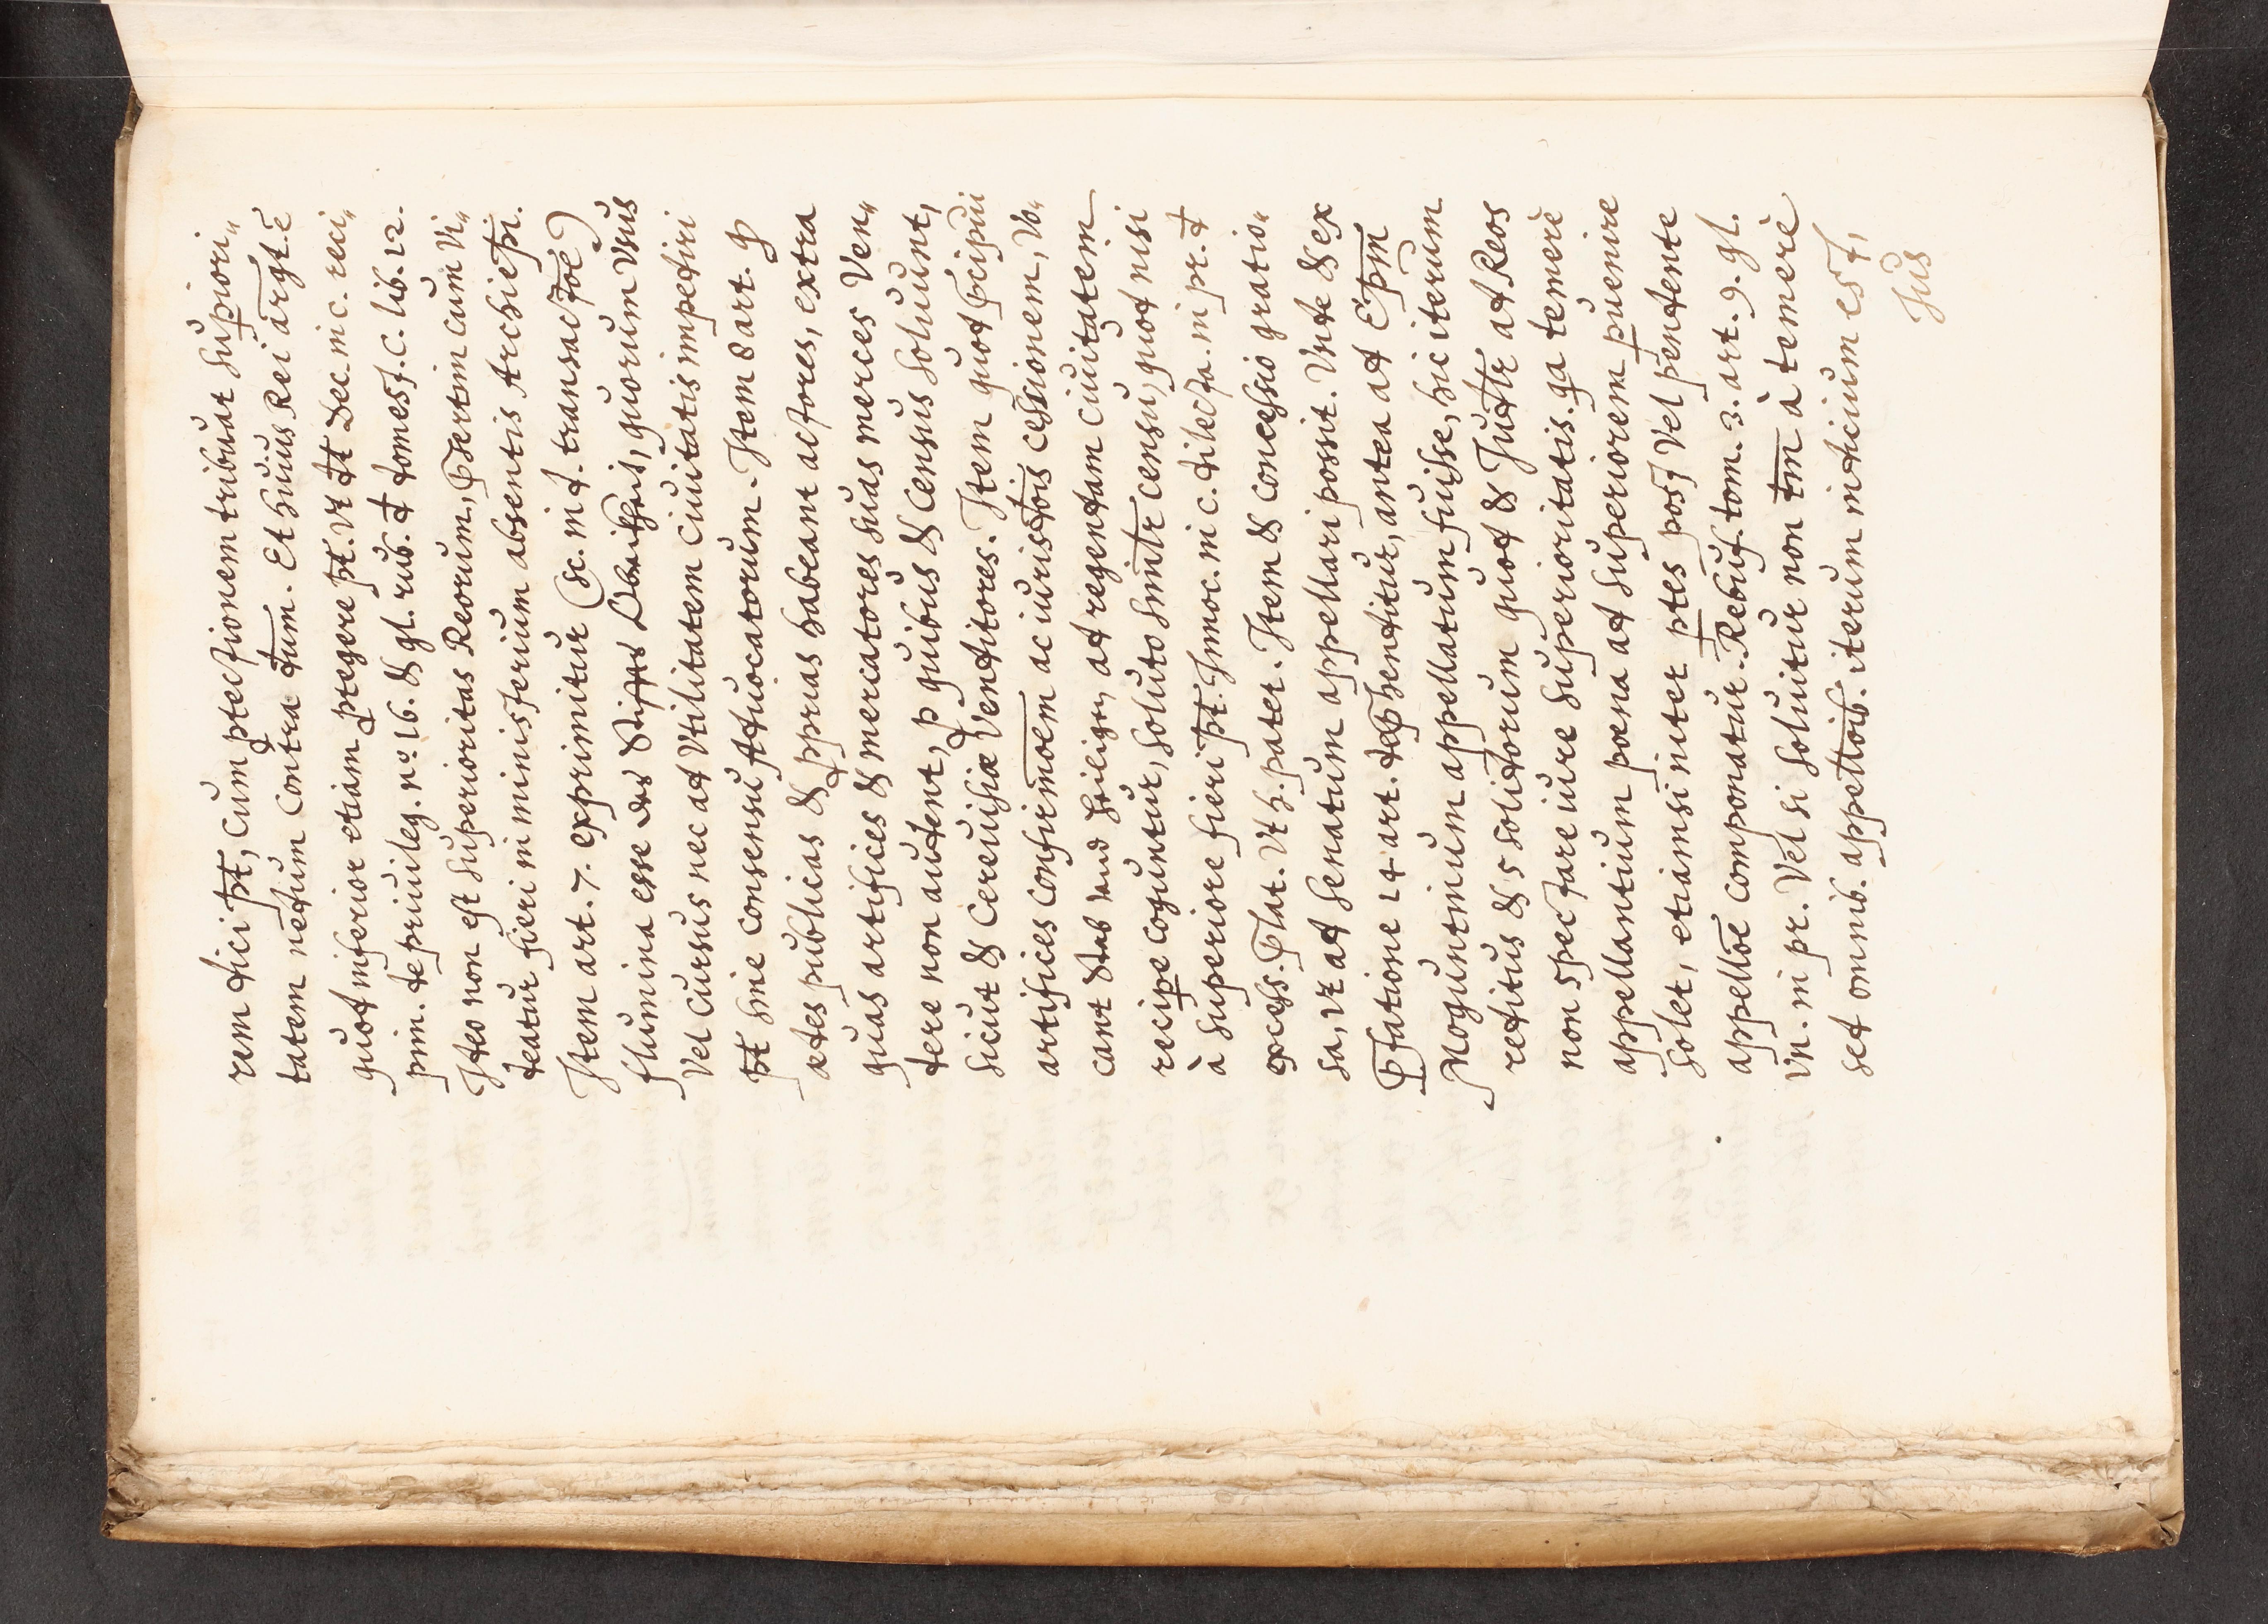 ram dici pt̄, cum ꝓtectionem tribuat supiori„
tatem nedum contra dum̄. Et huius Rei argt̄. ē
quod inferior etiam ꝓtegere pt̄. Vt dt̄ Dec. in c. reci„
pim. de priuileg. nº 16. & gl. rub. d̄ domest. C. lib. 12.
Ideo non est superioritas Reorum, p̄sertim cum Vi„
deatur fieri in ministerium absentis Archiepi̅.
Item art. 7. exprimitur (sc. in d. transactōe)
flumina esse des Stiffts , quorum Vsus
Vel Cursus nec ad Vtilitatem Ciuitatis impediri
pt̄ sine consensu Aduocatorum. Item 8 art. ꝙ
aedes publicas & ꝓprias habeant actores, extra
quas artifices & mercatores suas merces Ven„
dere non audent, ꝓ quibus & Census soluunt,
sicut & Cereuisiæ Venditores. Item quod p̄cipui
artifices confirmōem ac iurisdōis cessionem, Vo„
cant Stab Vnd heiligen, ad regendam ciuitatem
recipe coguntur, soluto simltr̄ censu, quod nisi
à superiore fieri pt̄. Innoc. in c. dilecta. in pr. d̄
excess. p̄lat. Vt s. patet. Item & concessio gratio„
sa, Vt ad senatum appellari possit. Vnde & ex
p̄fatione 14 art. dep̄henditur, antea ad Ep̄m
Moguntinum appellatum fuisse, hic iterum
reditus & 5 solidorum quod & Judr̄ ad Reos
non spectare iure superioritatis. qa temerè
appellantium poena ad superiorem puenire
solet, etiamsi inter ptes post Vel pendente
appellōe componatur. Rebuf. tom. 3. art. 9. gl.
Vn. in pr. Vel si soluitur non tm̄ à temerè
sed omnib. appellōib. iterum indicium est,
Jus